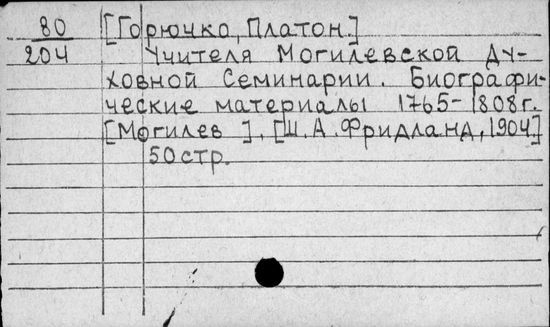 80 [Горючко, Платон.]
204 Учителя Могилевской Ду-
ховной Семинарии. Биографи-
ческие материалы 1765-1808г.
[Могилев]. [Ш.А.Фридланд, 1904]
50стр.